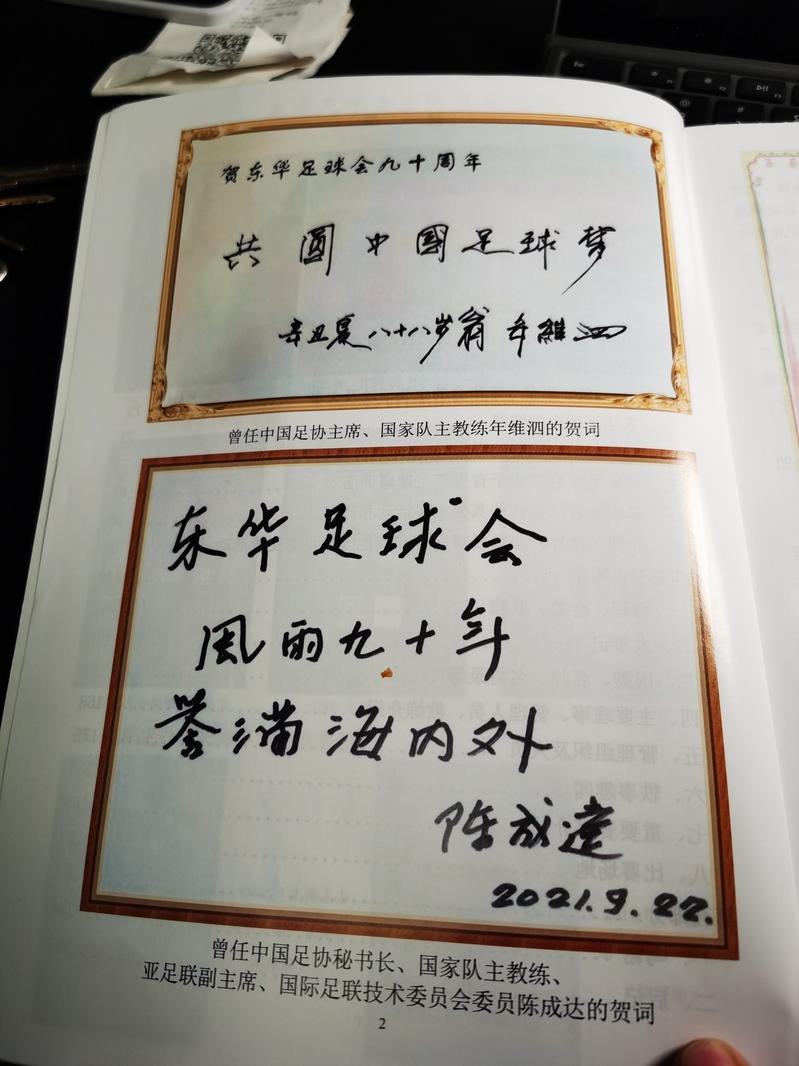 贺东华足球会九十周年
共圆中國足球梦
辛丑夏八十八岁翁年維泗
曾任中国足协主席、国家队主教练年维泗的贺词
东华足球会
風雨九十年
誉满海内外
陈成達
2021.9.22.
曾任中国足协秘书长、国家队主教练、
亚足联副主席、国际足联技术委员会委员陈成达的贺词
2